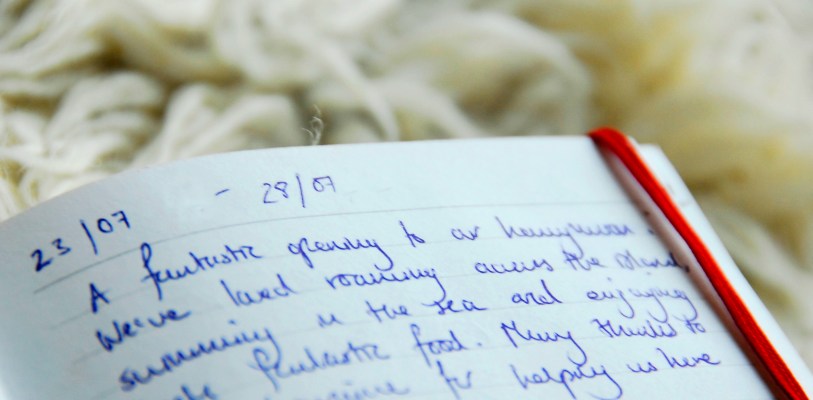 23/07 - 28/07
A fantastic opening to our honeymoon.
We've loved roaming across the island,
swimming in the sea and enjoying
fantastic food. Many thanks to
for helping us have